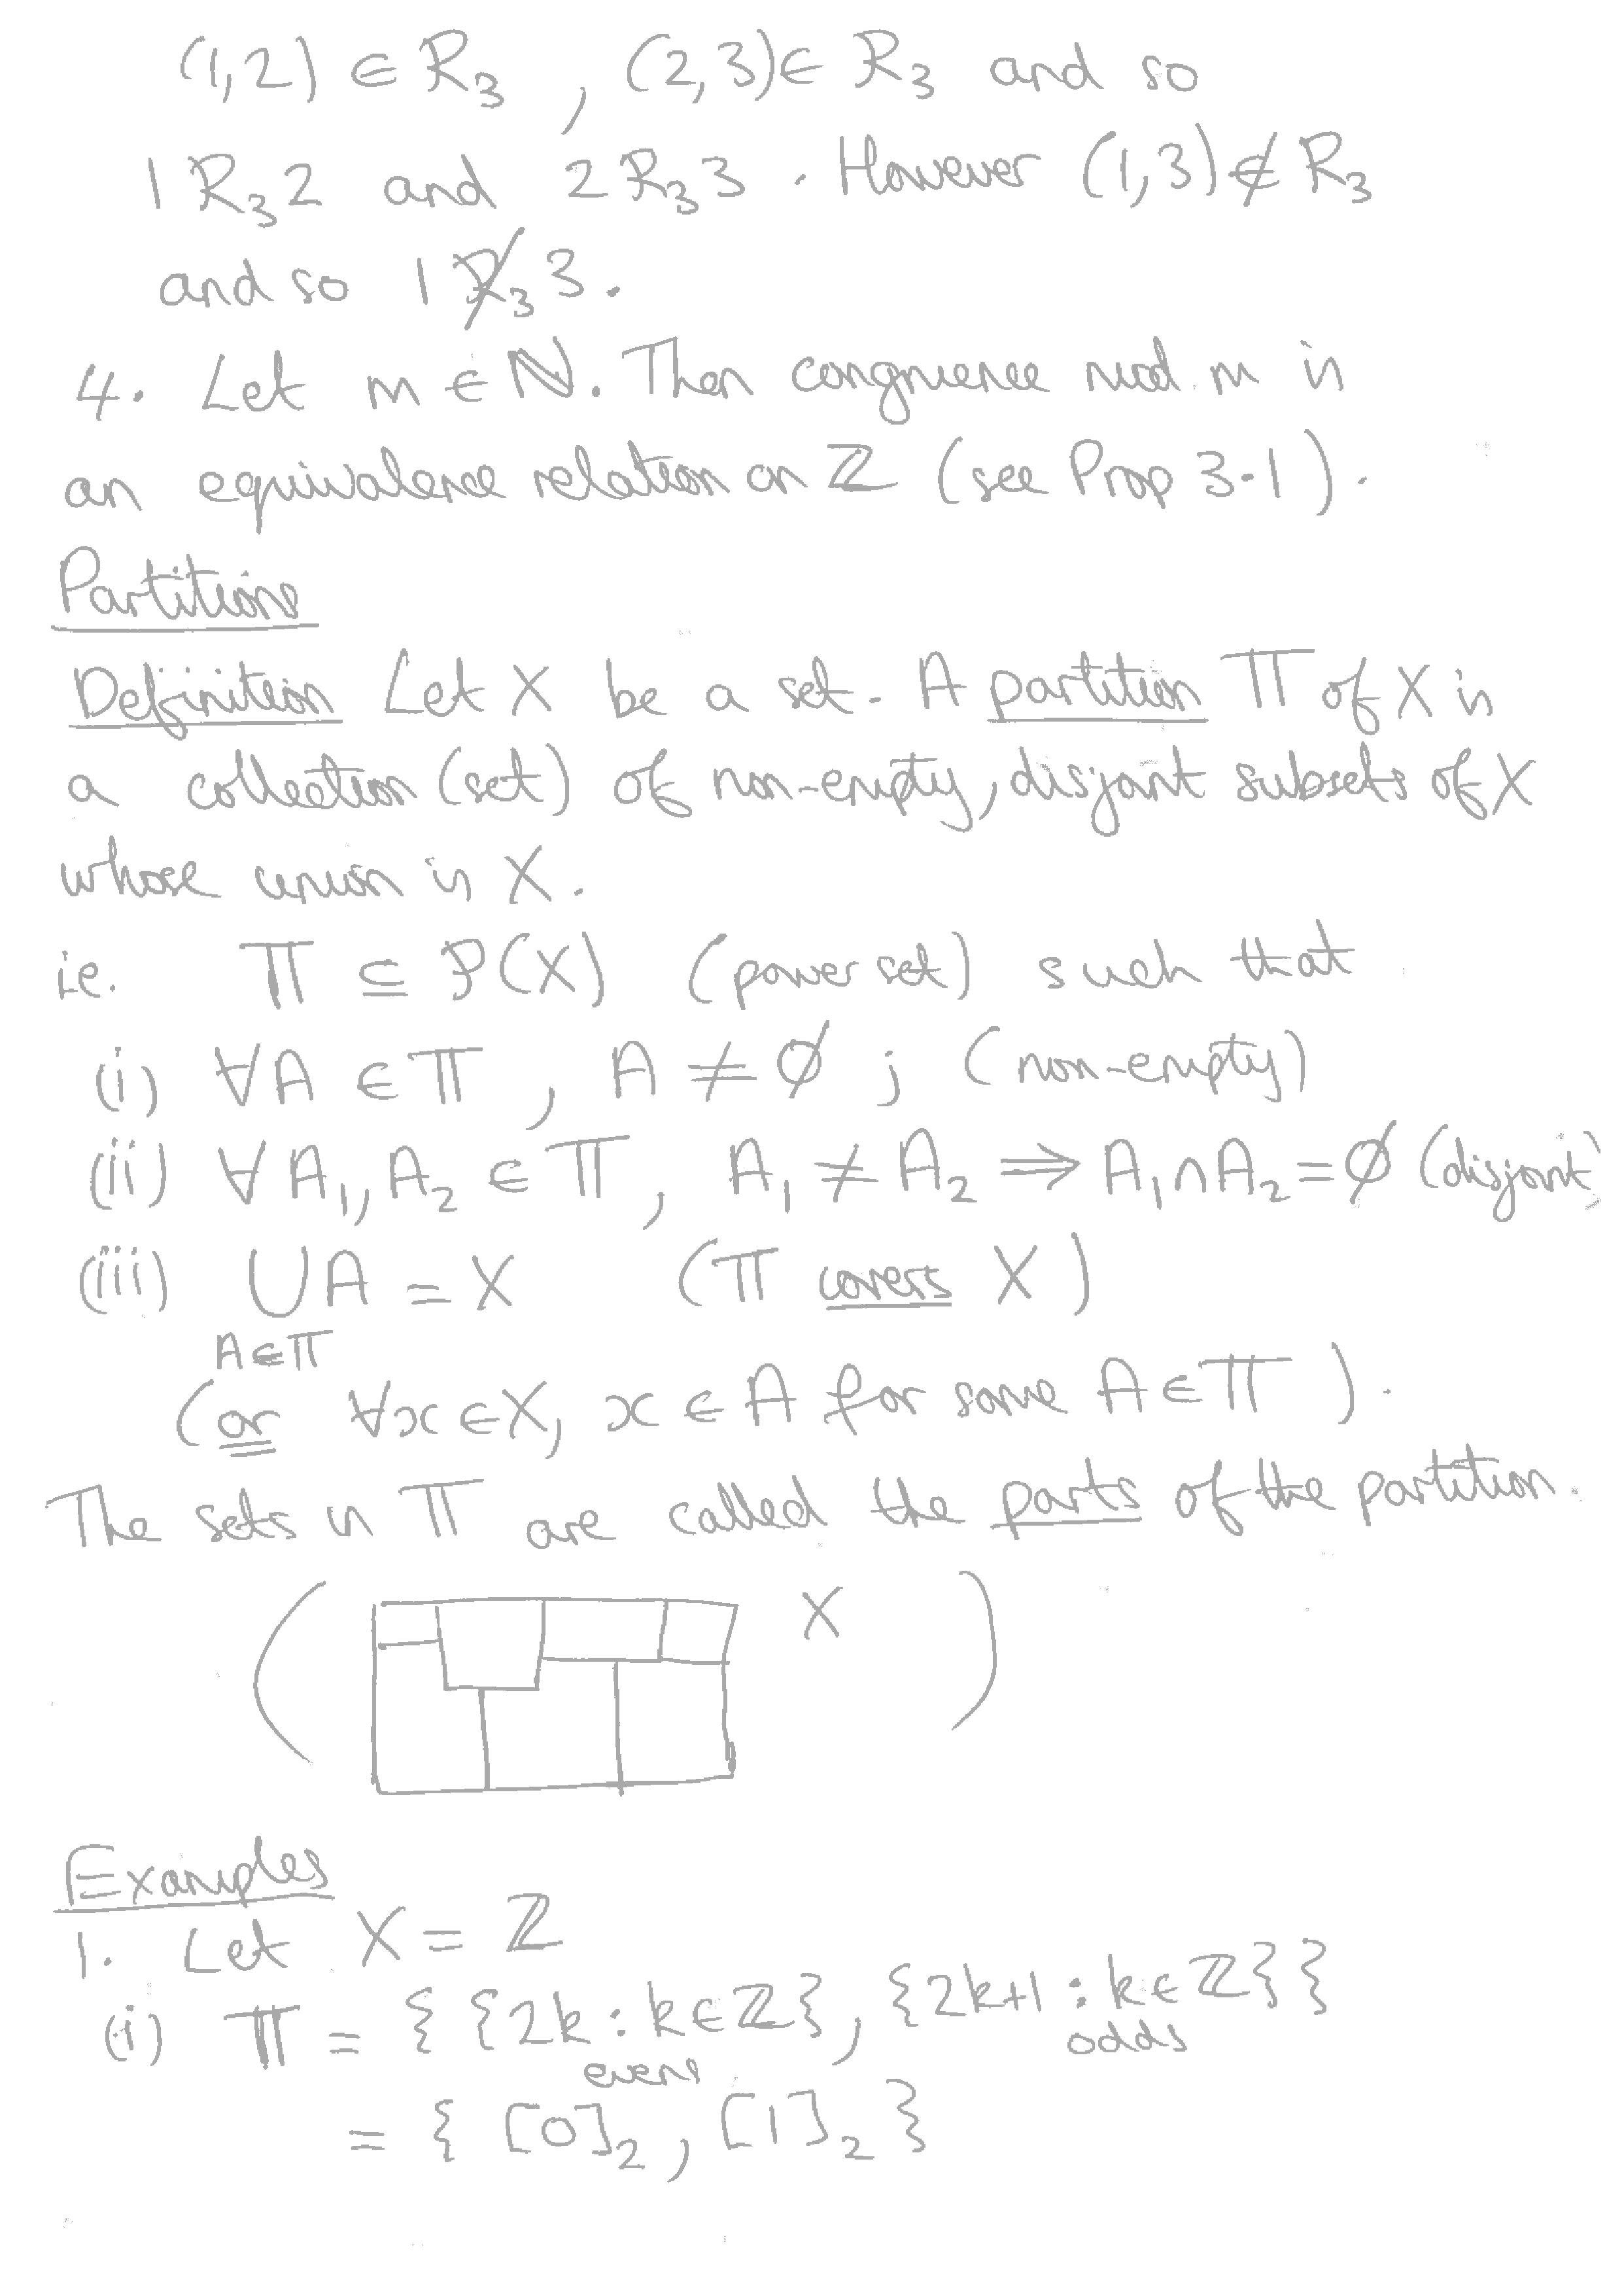 (1,2) ∈ R₃ , (2,3) ∈ R₃ and so
1 R₃ 2 and 2 R₃ 3 . However (1,3) ∉ R₃
and so 1 R̸₃ 3 .
4. Let m ∈ ℕ. Then congruence mod m is
an equivalence relation on ℤ (see Prop 3.1).
Partitions
Definition Let X be a set. A partition Π of X is
a collection (set) of non-empty, disjoint subsets of X
whose union is X.
i.e. Π ⊆ P(X) (power set) such that
(i) ∀A ∈ Π , A ≠ ∅ ; (non-empty)
(ii) ∀A₁, A₂ ∈ Π, A₁ ≠ A₂ ⇒ A₁ ∩ A₂ = ∅ (disjoint)
(iii) ∪A = X (Π covers X)
A∈Π
(or ∀x ∈ X, x ∈ A for some A ∈ Π).
The sets in Π are called the parts of the partition.
( X )
Examples
1. Let X = ℤ
(i) Π = { {2k : k ∈ ℤ}, {2k+1 : k ∈ ℤ} }
evens odds
= { [0]₂, [1]₂ }